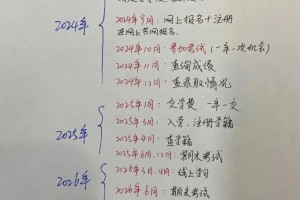 2024年
2024年9月：网上报名+注册
在网上官网报名.
2024年10月：参加考试(一年一次机会)
2024年11月：查询成绩
2024年12月：查录取情况
2025年
2025年1月：交学费，一年一交
2025年3月：入学、注册学籍
2025年4月：查学籍
2025年6月、12月：期末考试
2026年
2026年3月、4月：线上学习
2026年6月：期末考试